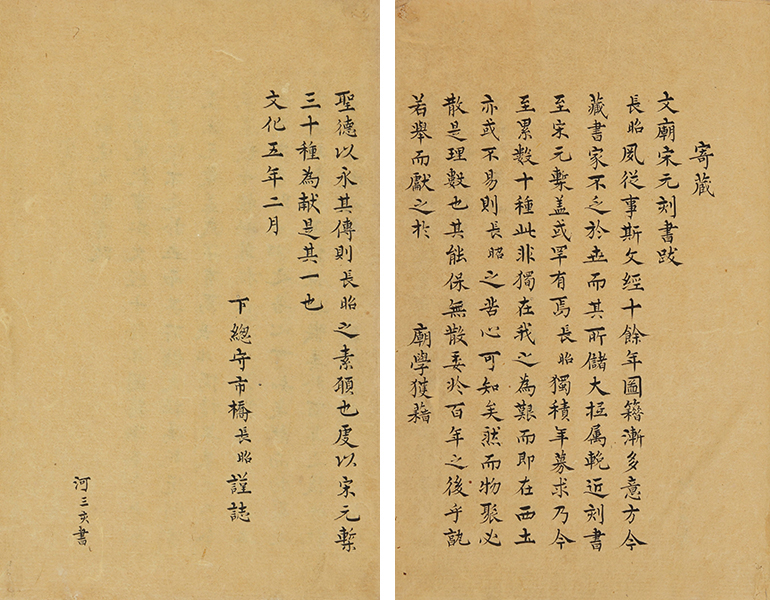 寄藏
文廟宋元刻書跋
長昭夙從事斯文經十餘年圖籍漸多意方今
藏書家不乏於世而其所儲大抵屬輓近刻書
至宋元槧盖或罕有焉長昭獨積年募求乃今
至累數十種此非獨在我之為艱而即在西土
亦或不易則長昭之苦心可知矣然而物聚必
散是理數也其能保無散委於百年之後乎孰
若舉而獻之於　廟學獲藉
聖德以永其傳則長昭之素願也虔以宋元槧
三十種為献是其一也
文化五年二月
下總守市橋長昭謹誌
河三亥書